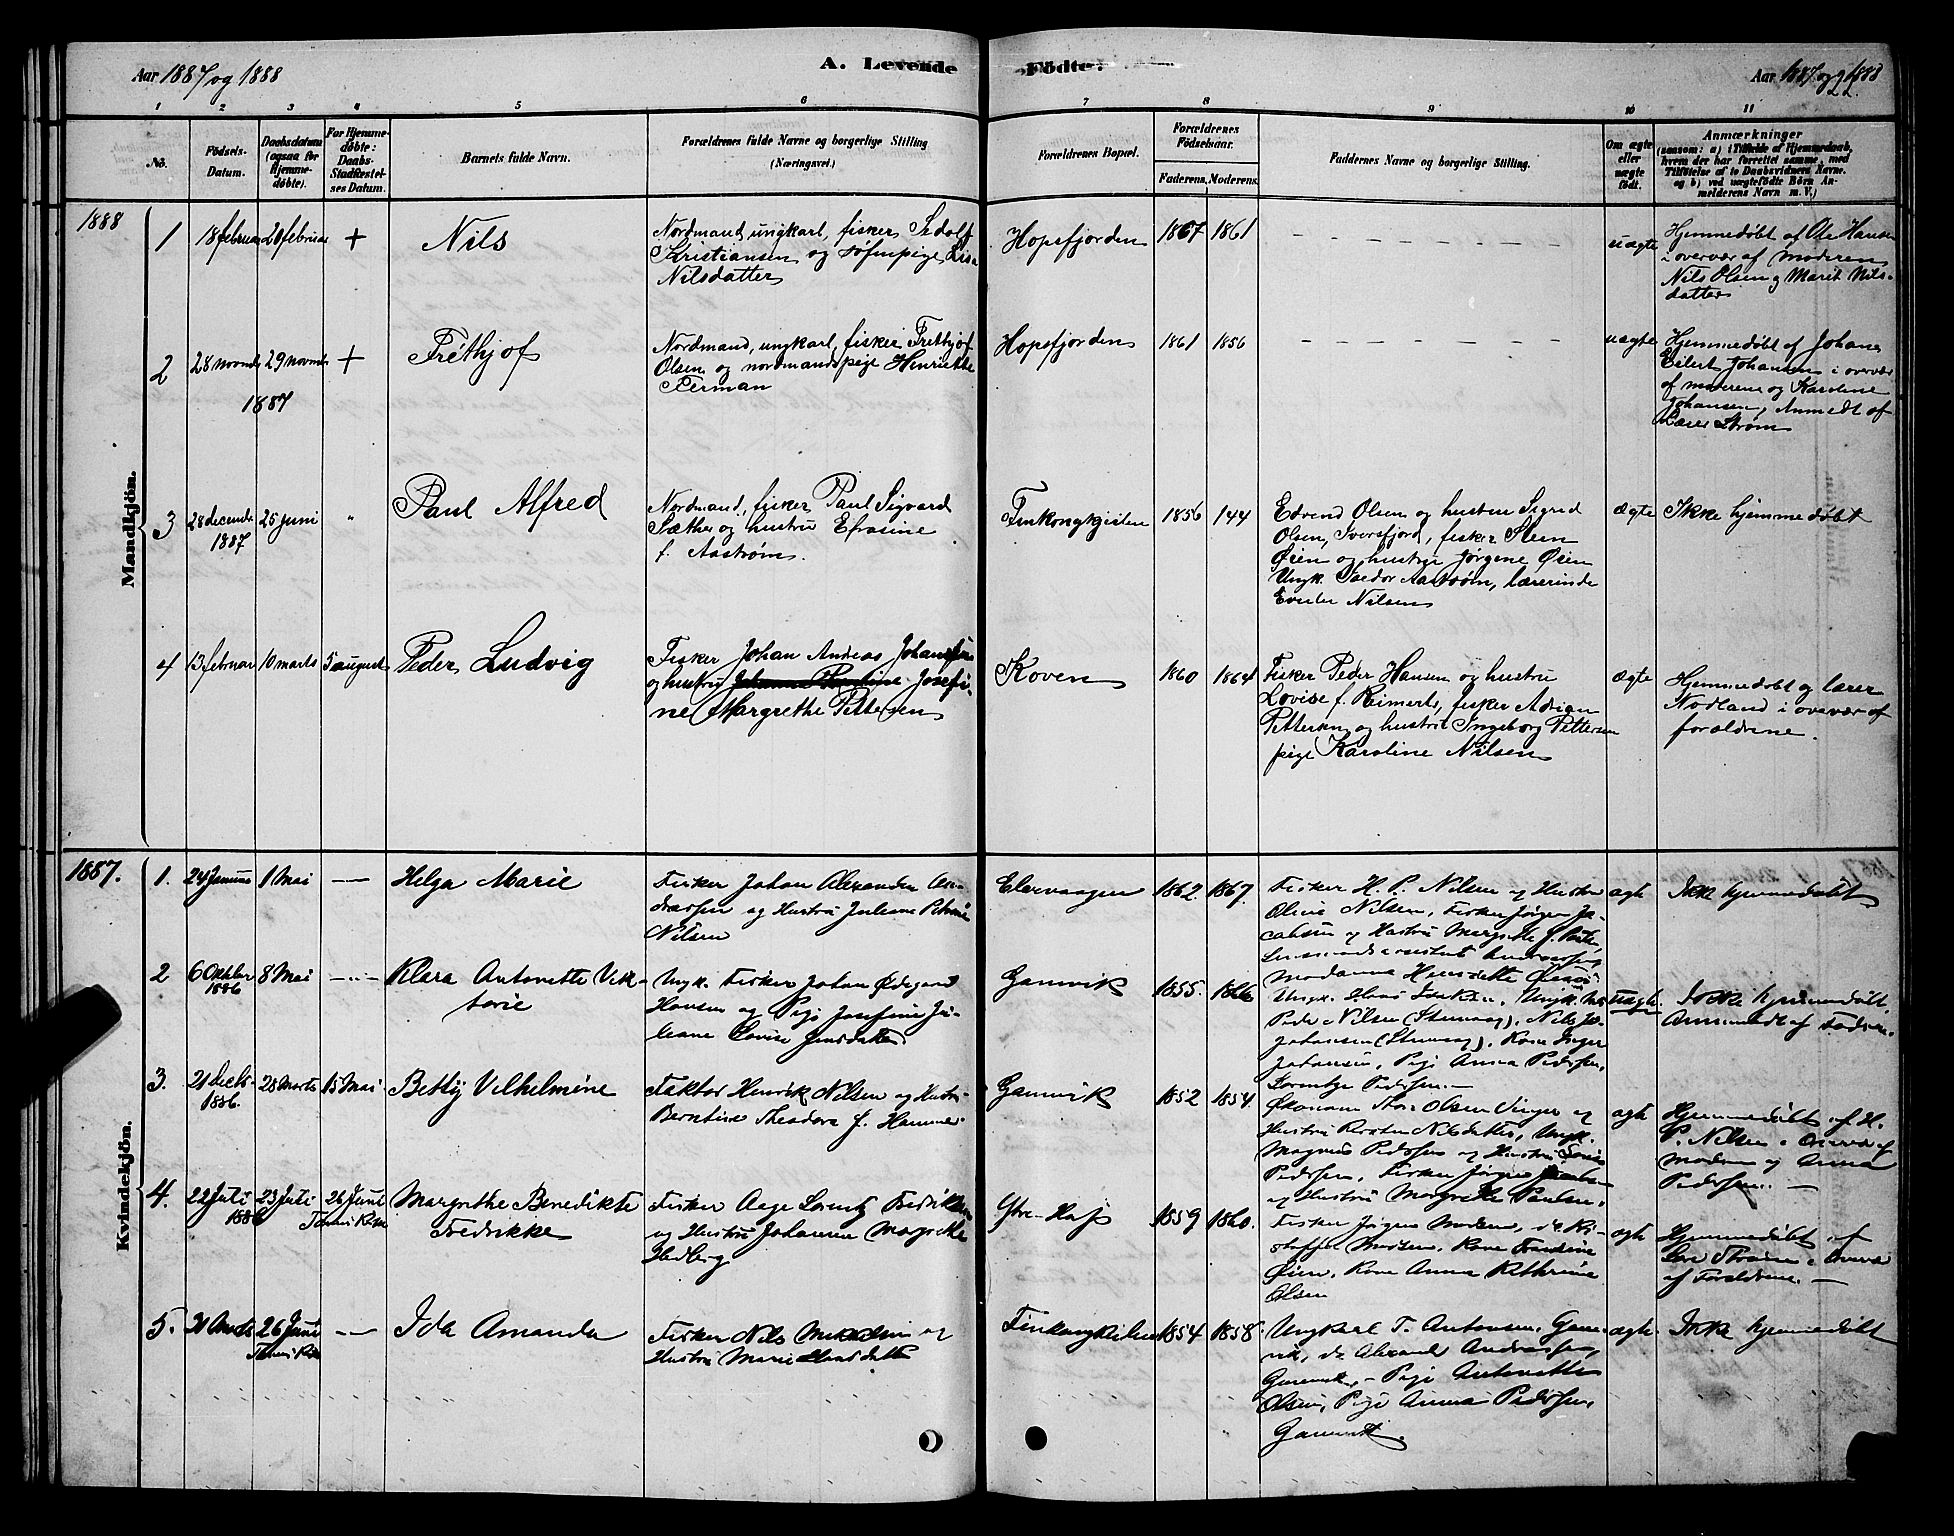 Aar 1887 og 1888
A. Levende
Fødte.
Aar 1887 og 1888
22.
1 2 3 4 5 6 7 8 9 10 11
No.
Fødsels-
Datum.
Daabsdatum
(ogsaa for
Hjemme-
døbte).
For Hjemme-
døbte:
Daabs-
Stadfæstel-
ses Datum.
Barnets fulde Navn.
Forældrenes fulde Navne og borgerlige Stilling
(Næringsvei.)
Forældrenes Bopæl.
Forældrenes
Fødselsaar.
Faderens. Moderens.
Faddernes Navne og borgerlige Stilling.
Om ægte
eller
uægte
født.
Anmærkninger
(saasom: a) i Tilfælde af Hjemmedaab,
hvem der har forrettet samme, med
Tilføielse af to Daabsvidners Navne.
og b) ved uægtefødte Børn An-
melderens Navn m. V.)
1888
Mandkjön.
1 18 februar 20 februar + Nils
Nordmand, ungkarl, fisker Sedolf
Kristiansen og søfinpige Lisa
Nilsdatter
Hopsfjorden 1867 1861
uægte
Hjemmedøbt af Ole Hansen
i overvær af moderen
Nils Olsen og Marit Nils-
datter
2 28 novemb 29 novemb +
1887
Frethjof
Nordmand, ungkarl, fisker Frethjof
Olsen og nordmandspige Henriette
Ferman
Hopsfjorden 1861 1856
uægte
Hjemmedøbt af Johan
Eilert Johansen i overvær
af moderene og Karoline
Johansen, Anmeldt af
Lærer Strøm
3 28 decemb 25 juni "
1887
Paul Alfred
Nordmand, fisker Paul Sigvard
Sæther og hustru Efrasine
f. Aastrøm.
Finkongkjeilen 1856 144
Edvend Olsen og hustru Sigrid
Olsen, Iversfjord, fisker Steen
Øien og hustru Jørgene Øien
Ungk. Aastrøm, lærerinde
Nilsen
ægte
Ikke hjemmedøbt
4 13 februar 10 marts 5 august
Peder Ludvig
Fisker Johan Andreas Johansen
og hustru Josefi-
ne Margrethe Pettersen
Koven 1860 1864
Fisker Peder Hansen og hustru
Lovise f. Reimerts, fisker Adrian
Pettersen og hustru Ingeborg Pettersen
pige Karoline Nilsen
ægte
Hjemmedøbt og lærer
Nodland i overvær af
forældrene.
1887.
Kvindekjön.
1. 24 Januar 1 Mai — Helga Marie
Fisker Johan Alexander An-
dreassen og Hustru Juliane Petrine
Nilsen
Elvevaagen 1862. 1867.
Fisker H. P. Nilsen og Hustru
Oline Nilsen, Fisker Jørgen Ja-
cobsen og Hustru Margrethe
ægte
Ikke hjemmedøbt
2 6 Oktober 8 Mai —"—
1886
Klara Antonette Vik-
torie
Ungk. Fisker Johan Ødegaard
Hansen og Pige Josefine Ju-
liane Lovise Jensdatter
Gamvik 1855. 1866
Madame Henriette
Ungk. Hans Isaksen, Ungk.
Peder Nilsen (Stenvaag), Nils Jo-
Johansen (Stenvaag), Kone Inger
Johansen, Pige Anna Pedersen,
Pedersen.
uægte.
Ikke hjemmedøbt.
Anmeldt af Faderen.
3. 21 Decb. 28 Marts 15 Mai
1886.
Betty Vilhelmine
Faktor Henrik Nilsen og Hustru
Berntine Theodora f. Hammer
Gamvik 1852 1854.
Økonom Olsen og
Hustru Kirsten Nilsdatter, Ungk.
Magnus Pedersen og Hustru
Pedersen, Fisker Jørgen
og Hustru Margrethe Paulsen.
ægte
Hjemmedøbt af H.
P. Nilsen i Overvær af
Moderen og Anna
Pedersen. —
4. 22 Juli 23 Juli 26 Juni
1886
Margrethe Benedikte
Fredrikke
Fisker Aage Lorentz Fredriksen
og Hustru Johanna Margrethe
Hedberg
1859 1860.
Fisker Jørgen Madsen, do. Kri-
stoffer Madsen, Kone
Øien, Kone Anna Kathrine
Olsen
ægte
Hjemmedøbt af
Lærer Strøm i Overvær
af Forældrene. —
5. 21 Marts 26 Juni —
Ida Amanda
Fisker Nils Mikkelsen og
Hustru Marie Hansdatter
Finkongkeilen 1854 1858.
Ungkarl T. Antonsen, Gam-
vik, do. Alexander Andreassen,
Gamvik, – Pige Antonette
Olsen, Pige Anna Pedersen,
Gamvik.
ægte.
Ikke hjemmedøbt